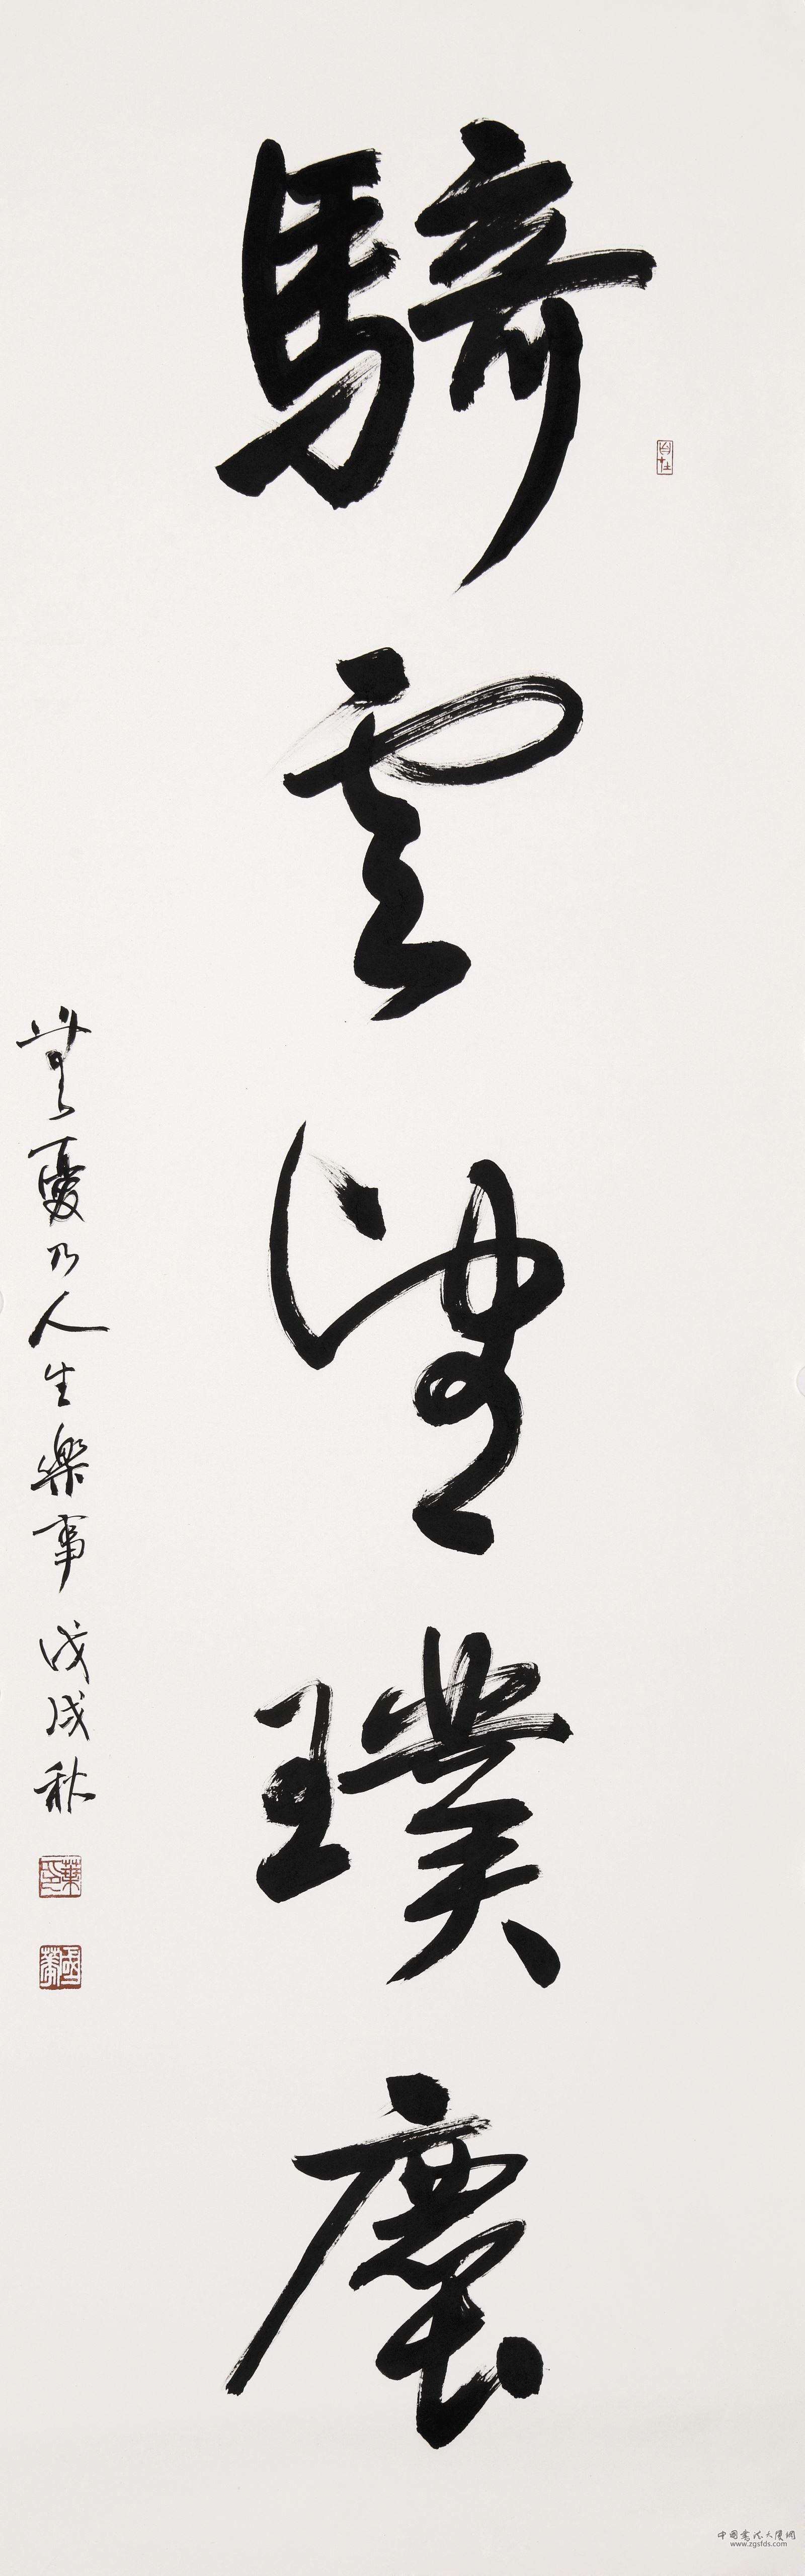 自在
騎雲望璞
無憂乃人生樂事 戊戌秋
中國書法大廈網
www.zgsfds.com